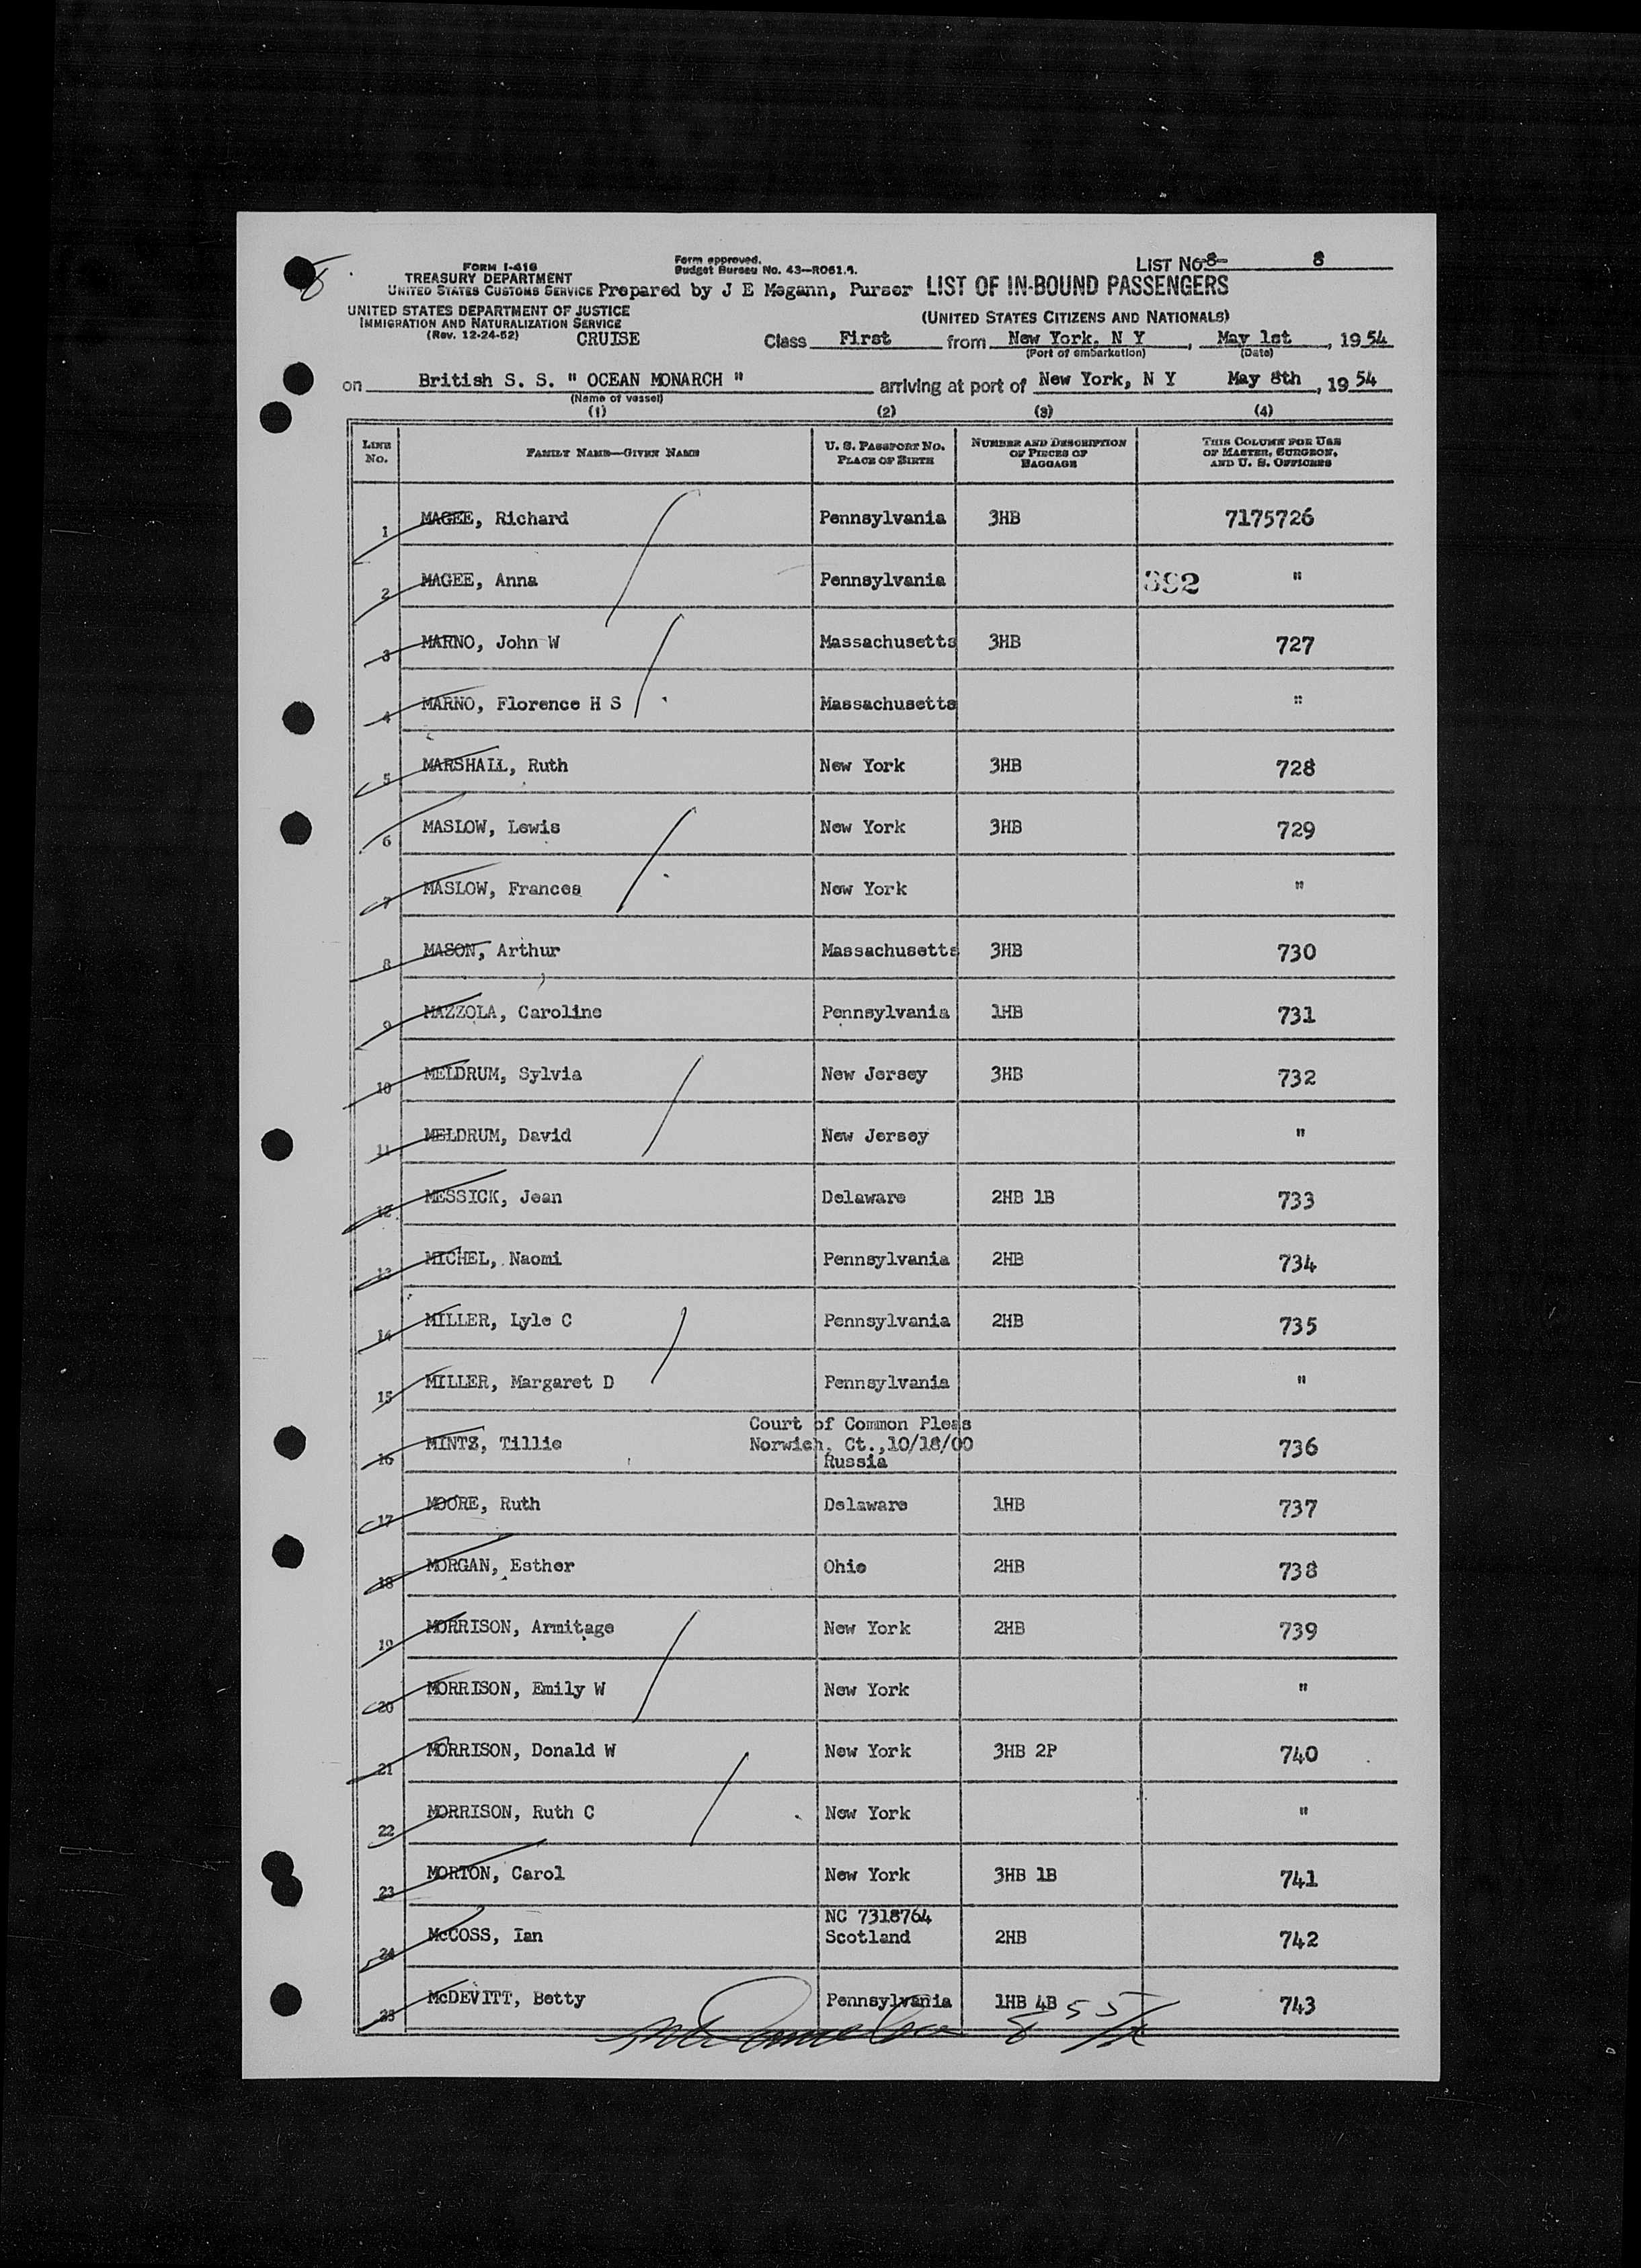 FORM I-416
TREASURY DEPARTMENT
UNITED STATES CUSTOMS SERVICE
UNITED STATES DEPARTMENT OF JUSTICE
IMMIGRATION AND NATURALIZATION SERVICE
(Rev. 12-24-52)
CRUISE
Form approved.
Budget Bureau No. 43—R061.4.
Prepared by J E Magann, Purser
LIST No. 8 8
LIST OF IN-BOUND PASSENGERS
(UNITED STATES CITIZENS AND NATIONALS)
Class First from New York, N Y, May 1st, 1954
(Port of embarkation) (Date)
on British S. S. " OCEAN MONARCH " arriving at port of New York, N Y May 8th, 1954
(Name of vessel)
(1) (2) (3) (4)
LINE No. FAMILY NAME—GIVEN NAME U. S. PASSPORT NO. PLACE OF BIRTH NUMBER AND DESCRIPTION OF PIECES OF BAGGAGE THIS COLUMN FOR USE OF MASTER, SURGEON, AND U. S. OFFICERS
1 MAGEE, Richard Pennsylvania 3HB 7175726
2 MAGEE, Anna Pennsylvania 392 "
3 MARNO, John W Massachusetts 3HB 727
4 MARNO, Florence H S Massachusetts "
5 MARSHALL, Ruth New York 3HB 728
6 MASLOW, Lewis New York 3HB 729
7 MASLOW, Frances New York "
8 MASON, Arthur Massachusetts 3HB 730
9 MAZZOLA, Caroline Pennsylvania 1HB 731
10 MELDRUM, Sylvia New Jersey 3HB 732
11 MELDRUM, David New Jersey "
12 MESSICK, Jean Delaware 2HB 1B 733
13 MICHEL, Naomi Pennsylvania 2HB 734
14 MILLER, Lyle C Pennsylvania 2HB 735
15 MILLER, Margaret D Pennsylvania "
Court of Common Pleas
16 MINTZ, Tillie Norwich, Ct.,10/18/00 736
Russia
17 MOORE, Ruth Delaware 1HB 737
18 MORGAN, Esther Ohio 2HB 738
19 MORRISON, Armitage New York 2HB 739
20 MORRISON, Emily W New York "
21 MORRISON, Donald W New York 3HB 2P 740
22 MORRISON, Ruth C New York "
23 MORTON, Carol New York 3HB 1B 741
NC 7318764
24 McCOSS, Ian Scotland 2HB 742
25 McDEVITT, Betty Pennsylvania 1HB 4B 743